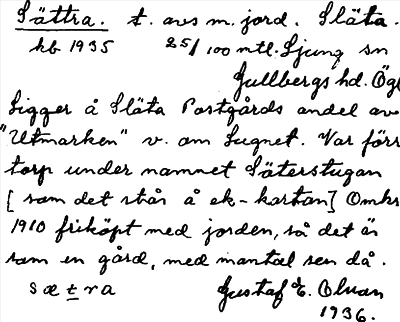 Sättra. t. avs m. jord. Släta.
kb 1935 25/100 mtl. Ljung sn
Gullbergs hd. Ögl
Ligger å Släta Postgårds andel av
"Utmarken" v. om Lugnet. Var förr
torp under namnet Säterstugan
[som det står å ek-kartan] Omkr
1910 friköpt med jorden, så det är
som en gård, med mantal sen då.
sæ±ra Gustaf E. Olsson
1936.